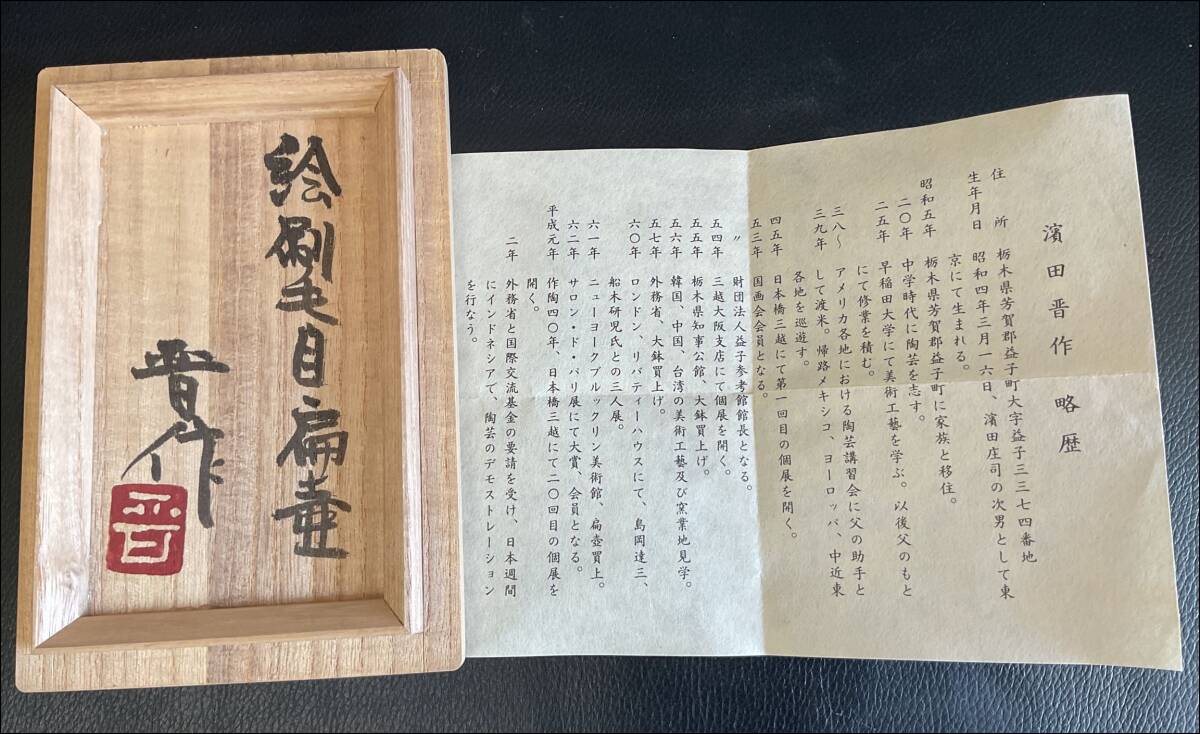 絵刷毛目扁壷
晋作
晋
濱田晋作 略歴
住所 栃木県芳賀郡益子町大字益子三三七四番地
生年月日 昭和四年三月一六日、濱田庄司の次男として東
京にて生まれる。
昭和五年 栃木県芳賀郡益子町に家族と移住。
二〇年 中学時代に陶芸を志す。
二五年 早稲田大学にて美術工藝を学ぶ。以後父のもと
にて修業を積む。
三八〜 アメリカ各地における陶芸講習会に父の助手と
三九年 して渡米。帰路メキシコ、ヨーロッパ、中近東
各地を巡遊。
四五年 日本橋三越にて第一回目の個展を開く。
五三年 国画会会員となる。
〃 財団法人益子参考館館長となる。
五四年 三越大阪支店にて個展を開く。
五五年 栃木県知事公館、大鉢買上げ。
五六年 韓国、中国、台湾の美術工藝及び窯業地見学。
五七年 外務省、大鉢買上げ。
六〇年 ロンドン、リバティーハウスにて、島岡達三、
船木研児氏との三人展。
六一年 ニューヨークブルックリン美術館、扁壺買上。
六二年 サロン・ド・パリ展にて大賞、会員となる。
平成元年 作陶四〇年、日本橋三越にて二〇回目の個展を
開く。
二年 外務省と国際交流基金の要請を受け、日本週間
にインドネシアで、陶芸のデモストレーション
を行なう。